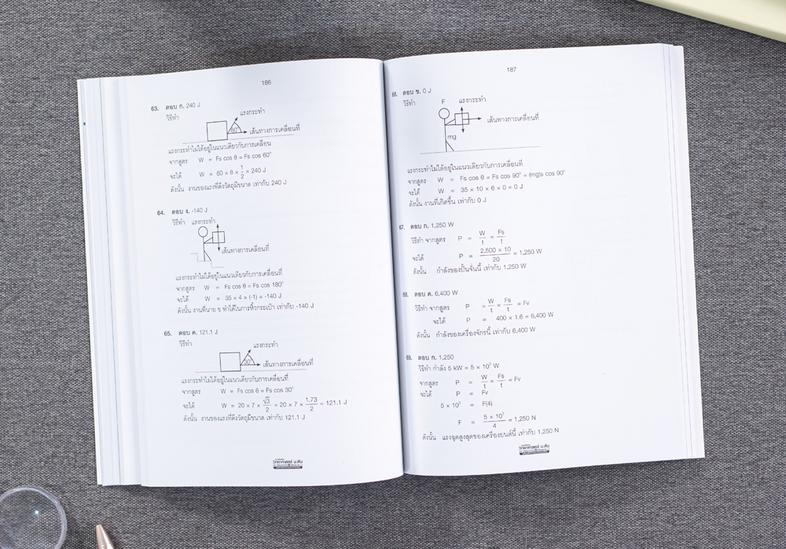 186
63. ตอบ ก. 240 J
วิธีทำ
แรงกระทำ
60°
เส้นทางการเคลื่อนที่
แรงกระทำไม่ได้อยู่ในแนวเดียวกับการเคลื่อน
จากสูตร W = Fs cos θ = Fs cos 60°
จะได้ W = 60 × 8 × 1/2 = 240 J
ดังนั้น งานของแรงที่ดึงวัตถุมีขนาด เท่ากับ 240 J
64. ตอบ ง. -140 J
วิธีทำ แรงกระทำ
เส้นทางการเคลื่อนที่
แรงกระทำไม่ได้อยู่ในแนวเดียวกับการเคลื่อนที่
จากสูตร W = Fs cos θ = Fs cos 180°
จะได้ W = 35 × 4 × (-1) = -140 J
ดังนั้น งานที่นาย ข ทำได้ในการหิ้วกระเป๋า เท่ากับ -140 J
65. ตอบ ค. 121.1 J
วิธีทำ
แรงกระทำ
30°
เส้นทางการเคลื่อนที่
แรงกระทำไม่ได้อยู่ในแนวเดียวกับการเคลื่อนที่
จากสูตร W = Fs cos θ = Fs cos 30°
จะได้ W = 20 × 7 × √3/2 = 20 × 7 × 1.73/2 = 121.1 J
ดังนั้น งานของแรงที่ดึงวัตถุมีขนาด เท่ากับ 121.1 J
187
ตอบ ข. 0 J
วิธีทำ F แรงกระทำ
เส้นทางการเคลื่อนที่
mg
แรงกระทำไม่ได้อยู่ในแนวเดียวกับการเคลื่อนที่
จากสูตร W = Fs cos θ = Fs cos 90° = (mg)s cos 90°
จะได้ W = 35 × 10 × 6 × 0 = 0 J
ดังนั้น งานที่เกิดขึ้น เท่ากับ 0 J
67. ตอบ ก. 1,250 W
วิธีทำ จากสูตร P = W/t = Fs/t
จะได้ P = 2,500 × 10/20 = 1,250 W
ดังนั้น กำลังของปั้นจั่นนี้ เท่ากับ 1,250 W
68. ตอบ ค. 6,400 W
วิธีทำ จากสูตร P = W/t = Fs/t = Fv
จะได้ P = 400 × 1.6 = 6,400 W
ดังนั้น กำลังของเครื่องจักรนี้ เท่ากับ 6,400 W
69. ตอบ ก. 1,250
วิธีทำ กำลัง 5 kW = 5 × 10³ W
จากสูตร P = W/t = Fs/t = Fv
จะได้ P = Fv
5 × 10³ = F(4)
F = 5 × 10³/4 = 1,250 N
ดังนั้น แรงฉุดสูงสุดของเครื่องยนต์นี้ เท่ากับ 1,250 N